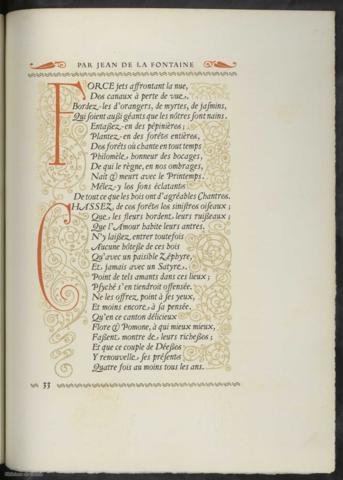 PAR JEAN DE LA FONTAINE
FORCE jets affrontant la nue,
Des canaux à perte de vue,
Bordez-les d'orangers, de myrtes, de jasmins,
Qui soient aussi géants que les nôtres sont nains.
Entassez-en des pépinières;
Plantez-en des forêts entières,
Des forêts où chante en tout temps
Philomèle, honneur des bocages,
De qui le règne, en nos ombrages,
Naît & meurt avec le Printemps.
Mêlez-y les sons éclatants
De tout ce que les bois ont d'agréables Chantres.
CHASSEZ, de ces forêts les sinistres oiseaux;
Que les fleurs bordent leurs ruisseaux;
Que l'Amour habite leurs antres.
N'y laissez entrer toutefois
Aucune hôtesse de ces bois
Qu'avec un paisible Zéphyre,
Et jamais avec un Satyre.
Point de tels amants dans ces lieux;
Psyché s'en tiendroit offensée.
Ne les offrez point à ses yeux,
Et moins encore à sa pensée.
Qu'en ce canton délicieux
Flore & Pomone, à qui mieux mieux,
Fassent montre de leurs richesses;
Et que ce couple de Déesses
Y renouvelle ses présents
Quatre fois au moins tous les ans.
33